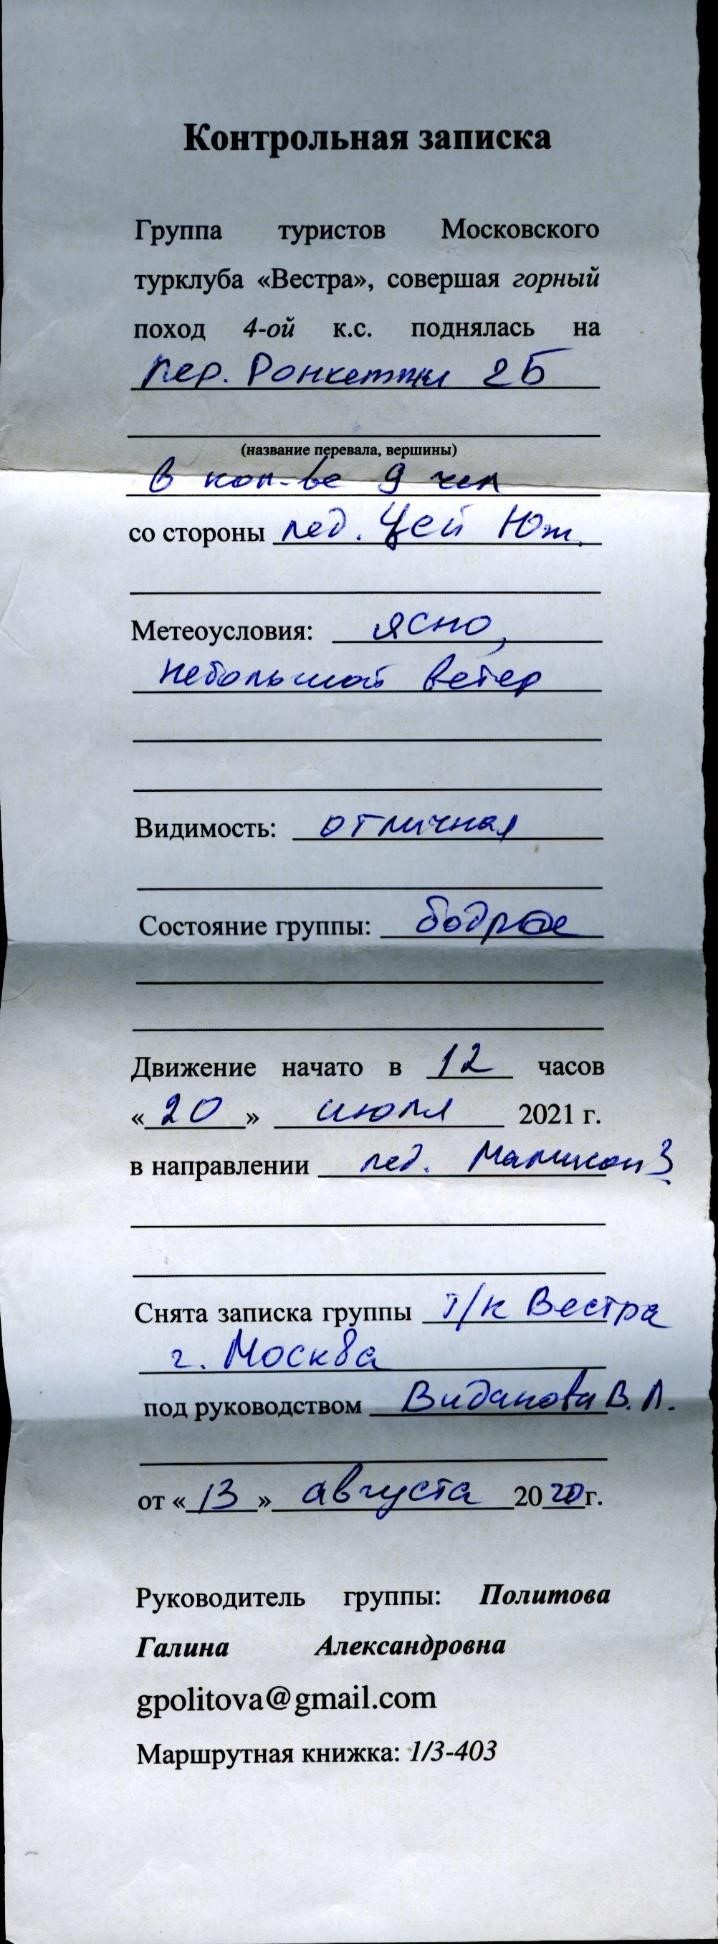 Контрольная записка
Группа туристов Московского
турклуба «Вестра», совершая горный
поход 4-ой к.с. поднялась на
пер. Ронкетти 2Б
(название перевала, вершины)
в кол-ве 9 чел
со стороны лед. Цей Юж.
Метеоусловия: ясно,
небольшой ветер
Видимость: отличная
Состояние группы: бодрое
Движение начато в 12 часов
«20» июля 2021 г.
в направлении лед.
Снята записка группы т/к Вестра
г. Москва
под руководством Виданова В.Л.
от «13» августа 2020г.
Руководитель группы: Политова
Галина Александровна
gpolitova@gmail.com
Маршрутная книжка: 1/3-403